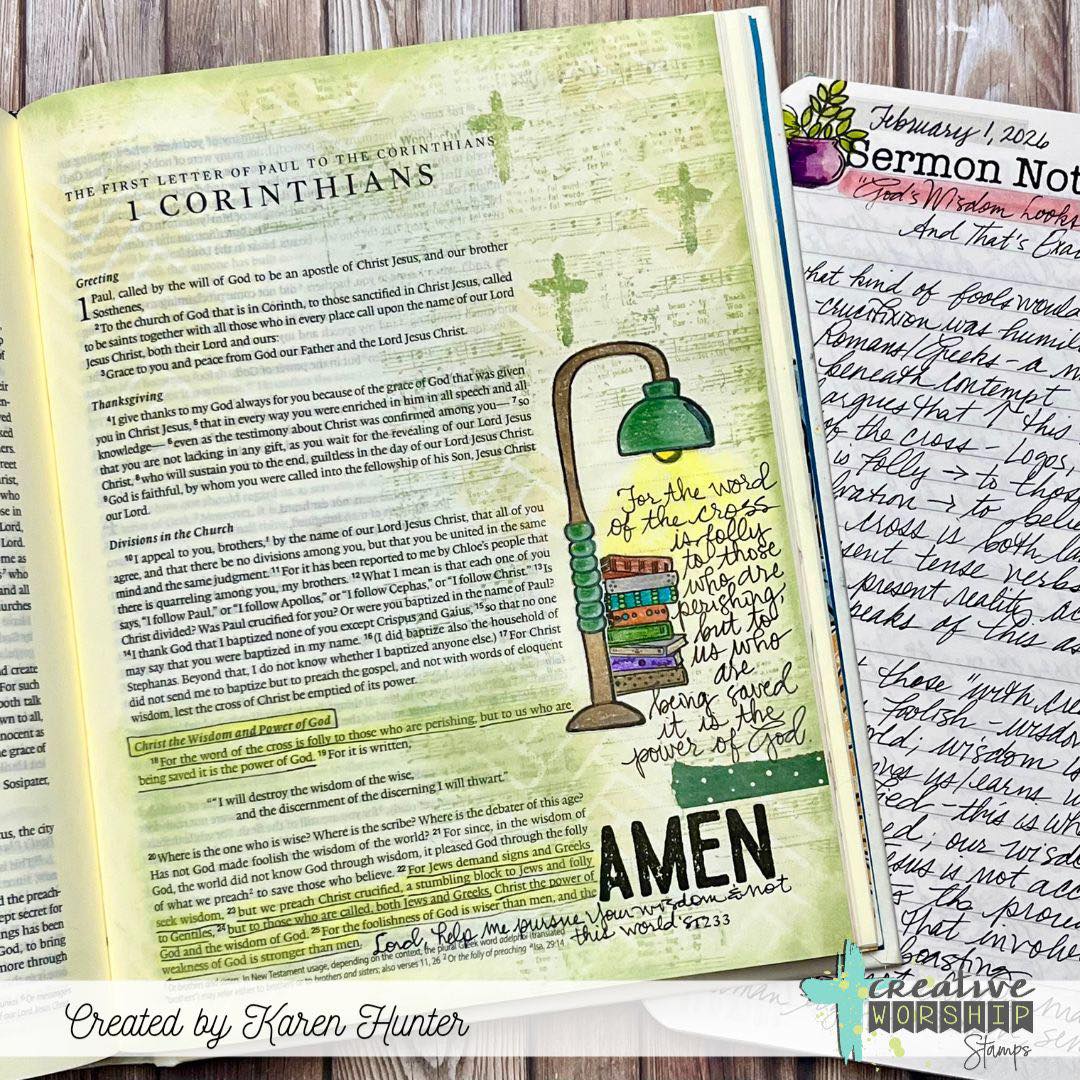 THE FIRST LETTER OF PAUL TO THE CORINTHIANS
1 CORINTHIANS
Greeting
1 Paul, called by the will of God to be an apostle of Christ Jesus, and our brother
Sosthenes,
2To the church of God that is in Corinth, to those sanctified in Christ Jesus, called
to be saints together with all those who in every place call upon the name of our Lord
Jesus Christ, both their Lord and ours:
3Grace to you and peace from God our Father and the Lord Jesus Christ.
Thanksgiving
4I give thanks to my God always for you because of the grace of God that was given
you in Christ Jesus, 5that in every way you were enriched in him in all speech and all
knowledge— 6even as the testimony about Christ was confirmed among you— 7so
that you are not lacking in any gift, as you wait for the revealing of our Lord Jesus
Christ, 8who will sustain you to the end, guiltless in the day of our Lord Jesus Christ.
9God is faithful, by whom you were called into the fellowship of his Son, Jesus Christ
our Lord.
Divisions in the Church
10I appeal to you, brothers,1 by the name of our Lord Jesus Christ, that all of you
agree, and that there be no divisions among you, but that you be united in the same
mind and the same judgment. 11For it has been reported to me by Chloe's people that
there is quarreling among you, my brothers. 12What I mean is that each one of you
says, "I follow Paul," or "I follow Apollos," or "I follow Cephas," or "I follow Christ." 13Is
Christ divided? Was Paul crucified for you? Or were you baptized in the name of Paul?
14I thank God that I baptized none of you except Crispus and Gaius, 15so that no one
may say that you were baptized in my name. 16(I did baptize also the household of
Stephanas. Beyond that, I do not know whether I baptized anyone else.) 17For Christ
did not send me to baptize but to preach the gospel, and not with words of eloquent
wisdom, lest the cross of Christ be emptied of its power.
Christ the Wisdom and Power of God
18For the word of the cross is folly to those who are perishing, but to us who are
being saved it is the power of God. 19For it is written,
"I will destroy the wisdom of the wise,
and the discernment of the discerning I will thwart."
20Where is the one who is wise? Where is the scribe? Where is the debater of this age?
Has not God made foolish the wisdom of the world? 21For since, in the wisdom of
God, the world did not know God through wisdom, it pleased God through the folly
of what we preach2 to save those who believe. 22For Jews demand signs and Greeks
seek wisdom, 23but we preach Christ crucified, a stumbling block to Jews and folly
to Gentiles, 24but to those who are called, both Jews and Greeks, Christ the power of
God and the wisdom of God. 25For the foolishness of God is wiser than men, and the
weakness of God is stronger than men.
For the word
of the cross
is folly
to those
who are
perishing,
but to
us who
are
being saved
it is the
power of God.
AMEN
Lord, help me pursue your wisdom & not
this world's 1233
February 1, 2026
Sermon Not
"God's Wisdom Looks
And That's Exa
what kind of fools would
crucifixion was humil
Romans/Greeks - a m
beneath contempt
argues that ↑ this
of the cross - Logos,
is folly → to those
→ to belie
cross is both
sent tense verbs
present reality
eaks of this as
those
foolish - wisdom
ld; wisdom is
ngs us/earns
- this is wh
ed; our wisdom
Jesus is not acc
That involve
boasting
Created by Karen Hunter
creative
WORSHIP
Stamps